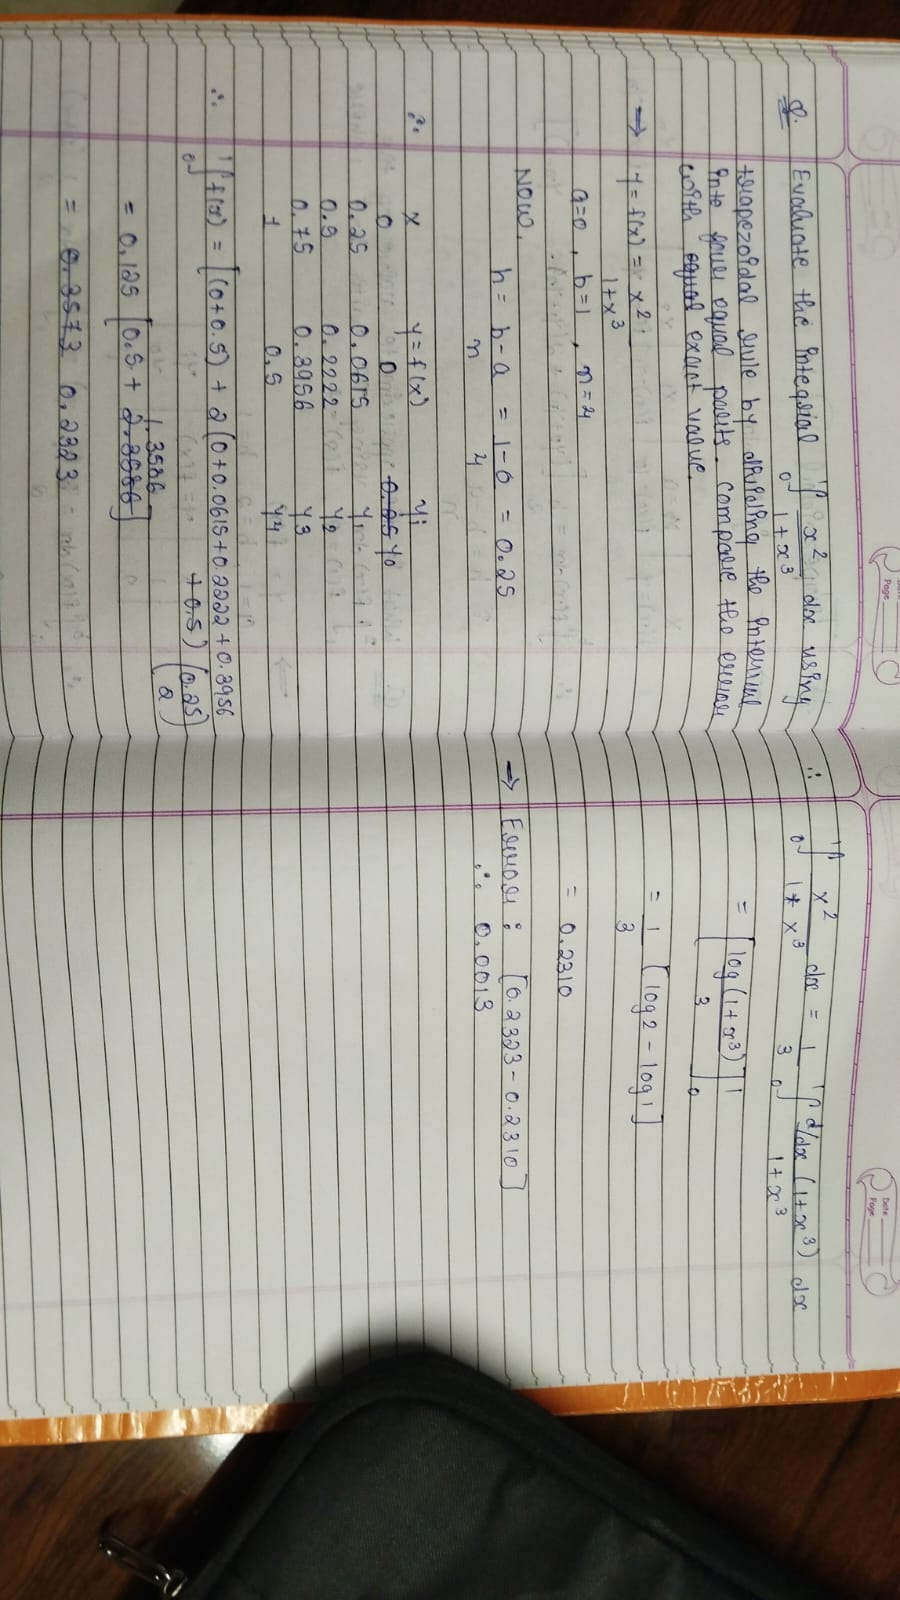 Date
Page
Q. Evaluate the integral 0∫1 x²/1+x³ dx using
trapezoidal rule by dividing the interval
into four equal parts. Compare the error
with equal exact value.
→ y = f(x) = x²/1+x³
a=0, b=1, n=4
Now,
h = b-a/n = 1-0/4 = 0.25
∴ x y=f(x) yi
0 0 0.25 y0
0.25 0.0615 y1
0.5 0.2222 y2
0.75 0.3956 y3
1 0.5 y4
∴ 0∫1 f(x) = [(0+0.5) + 2(0+0.0615+0.2222+0.3956
+0.5) (0.25/2)
1.3586
= 0.125 [0.5 + 2.3586]
= 0.3573 0.2323
Date
Page
∴ 0∫1 x²/1+x³ dx = 1/3 0∫1 d/dx (1+x³)/1+x³ dx
= [log(1+x³)/3]1 0
= 1/3 [log2 - log1]
= 0.2310
→ Error: [0.2323-0.2310]
∴ 0.0013